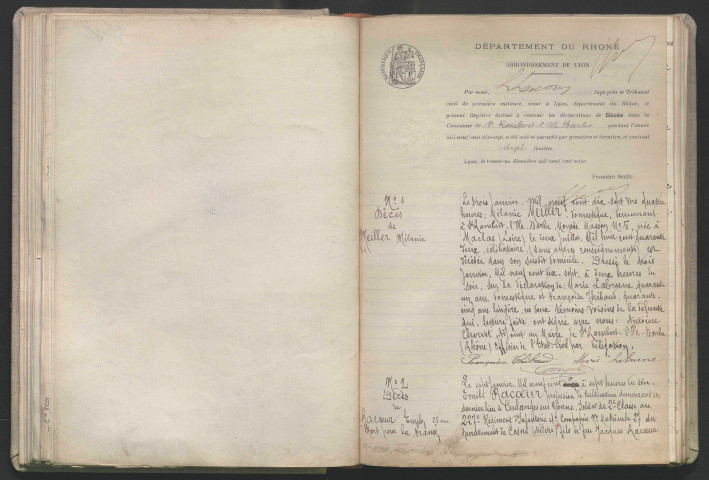 DÉPARTEMENT DU RHONE
ARRONDISSEMENT DE LYON
Par nous, Juge près le Tribunal
civil de première instance, séant à Lyon, département du Rhône, le
présent Registre destiné à recevoir les déclarations de Décès dans la
Commune de St Rambert l'Ile Barbe pendant l'année
mil neuf cent dix-sept, a été coté et paraphé par première et dernière, et contient
feuillets.
Lyon, le treize décembre mil neuf cent seize.
Première feuille
No 1
Décès
de
Meiller Mélanie
Le trois Janvier mil neuf cent dix sept vers quatre
heures, Mélanie Meiller, domestique, demeurant
à St Rambert l'Ile Barbe Montée Masson No 5, née à
Maclas (Loire) le deux Juillet mil huit cent quarante
deux, célibataire (sans autres renseignements) est
décédée dans son susdit domicile. Dressé le trois
Janvier, mil neuf cent dix sept, à deux heures du
soir. Sur la déclaration de Marie Laborne quarante
un ans, domestique et Françoise Thibaud, quarante
cinq ans lingère, en deux témoins voisins de la défunte
qui, lecture faite ont signé avec nous: Antoine
Adjoint au Maire de St Rambert l'Ile Barbe
(Rhône) Officier de l'Etat Civil par délégation.
Françoise Thibaud Marie Laborne
No 2
Décès
de
Racoeur Emile 25 ans
Mort pour la France
Le sept Janvier, mil neuf cent à sept heures du soir
Emile Racoeur, profession de cultivateur demeurant en
dernier lieu à Coulanges sur Yonne, Soldat de 2e Classe au
227e Régiment d'Infanterie Compagnie No Matricule
recrutement de Cosne (Nièvre) fils de feu Jacques Racoeur